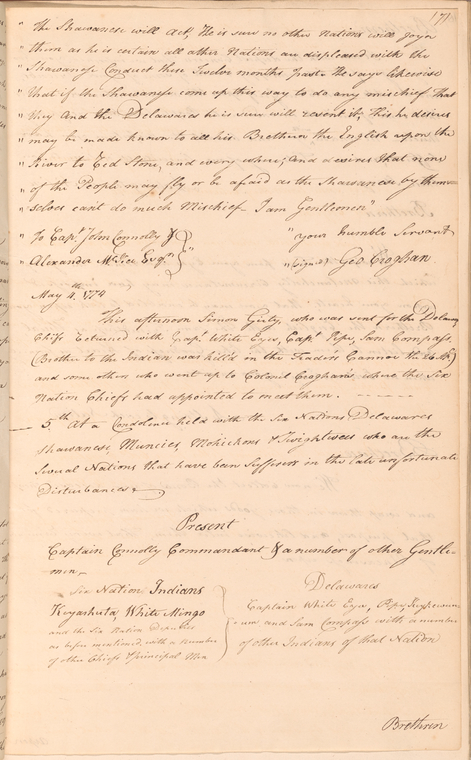 171
" the Shawanese will Act, He is sure no other Nations will Joyn
" them as he is certain all other Nations are displeased with the
" Shawanese Conduct these Twelve months past. He says likewise
" that if the Shawanese come up this way to do any mischief that
" they And the Delawares he is sure will resent it; This he desires
" may be made known to all his Brethren the English upon the
" River to Red Stone, and every where; And desires that none
" of the People may fly or be afraid as the Shawanese by them
" selves cant do much Mischief I am Gentlemen"
" To Capt. John Connolly & " your humble Servant
" Alexander McKee Esqr. " (signed) Geo Croghan
May 4th 1774
This afternoon Simon Girty, who was sent for the Delaware
Chiefs Returned with Capt. White Eyes, Capt. Pipe, Sam Compass
(Brother to the Indian was kill'd in the Traders Cannoe the 26 Ap)
and some others who went up to Colonel Croghan's, where the Six
Nation Chiefs had appointed to meet them.
5th At a Condolence held with the Six Nations Delawares
Shawanese, Muncies, Mohickons & Twightwees who are the
several Nations that have been sufferers in the late unfortunate
Disturbances
Present
Captain Connolly Commandant & a number of other Gentle-
men
Six Nation Indians
Keyashuta, White Mingo
and the Six Nation Deputies
as before mentioned, with a number
of other Chiefs & principal Men
Delawares
Captain White Eyes, Pipe,
and Sam Compass with a number
of other Indians of that Nation
Brethren